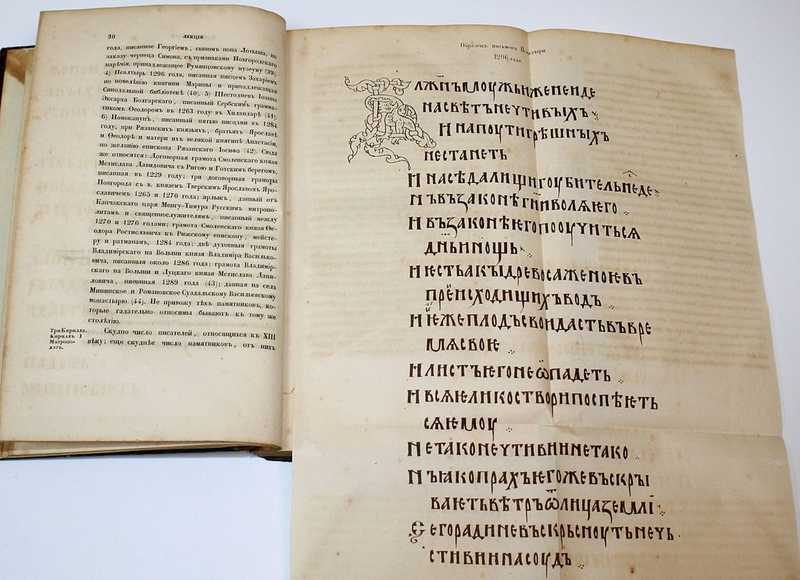 30 ЛЕКЦІЯ
года, писанное Георгіемъ, сыномъ попа Лотыша, по
заказу чернеца Симона, съ признаками Новгородскаго
нарѣчія, принадлежащее Румянцовскому музеуму (39);
4) Псалтырь 1296 года, писанная писцемъ Захаріемъ
по повелѣнію княгини Марины и принадлежащая
Синодальной библіотекѣ (40), 5) Шестодневъ Іоанна
Эксарха Болгарскаго, писанный Сербскимъ грамма-
тикомъ Ѳеодоромъ въ 1263 году въ Хиландарѣ (41);
6) Номоканунъ, писанный пятью писцами въ 1284
году, при Рязанскихъ князьяхъ, братьяхъ Ярославѣ
и Ѳеодорѣ и матери ихъ великой княгинѣ Анастасіи,
по желанію епископа Рязанскаго Іосифа (42). Сюда
же относятся: Договорная грамота Смоленскаго князя
Мстислава Давидовича съ Ригою и Готскимъ берегомъ,
писанная въ 1229 году; три договорныя грамоты
Новгорода съ в. княземъ Тверскимъ Ярославомъ Яро-
славичемъ 1265 и 1270 года; ярлыкъ, данный отъ
Капчакскаго царя Менгу-Тимура Русскимъ митропо-
литамъ и священнослужителямъ, писанный между
1270 и 1276 годами; грамота Смоленскаго князя Ѳе-
одора Ростиславича къ Рижскому епископу, мейсте-
ру и ратманамъ, 1284 года; двѣ духовныя грамоты
Владимірскаго на Волыни князя Владиміра Василько-
вича, писанныя около 1286 года; грамота Владимір-
скаго на Волыни и Луцкаго князя Мстислава Дани-
ловича, писанная 1289 года (43); данная на села
Мининское и Романовское Суздальскому Васильевскому
монастырю (44). Не привожу тѣхъ памятниковъ, ко-
торые гадательно относимы бываютъ къ тому же
столѣтію.
Три Кирилла.
Кириллъ I
Митропо-
литъ.
Скудно число писателей, относящихся къ XIII
вѣку; еще скуднѣе число памятниковъ, отъ нихъ
Образецъ письменъ Псалтыри
1296 года
БЛЖНЪ МОУЖЬ ИЖЕ НЕ ИДЕ
НА СВѢТЪ НЕЧТИВЫХЪ
И НА ПОУТИ ГРѢШНЫХЪ
НЕ СТАНЕТЬ
И НА СѢДАЛИЩИ ГОУБИТЕЛЬ НЕ ДЕ
НЪ ВЪ ЗАКОНѢ ГНИ ВОЛЯ ѤГО
И ВЪ ЗАКОНѢ ѤГО ПООУЧИТЬСЯ
ДНЬ И НОЩЬ
И ѤСТЬ АКЫ ДРЕВО САЖЕНОѤ ВЪ
ПРИ ИСХОДИЩИХЪ ВОДЪ
И ѤЖЕ ПЛОДЪ СВОИ ДАСТЬ ВЪ ВРЕ
МЯ СВОѤ
И ЛИСТЪ ѤГО НЕ ѾПАДЕТЬ
И ВСЯ ЮЛИКО СТВОРИ ПОСПѢѤТЬ
СЯ ѤМОУ
НЕ ТАКО НЕЧТИВИИ НЕ ТАКО
НЪ ЯКО ПРАХЪ ѤГОЖЕ ВЪСКРЫ
ВАѤТЬ ВѢТРЪ Ѿ ЛИЦА ЗЕМЛІ
СЕГО РАДИ НЕ ВЪСКРЬСНОУТЬ НЕЧЬ
СТИВИИ НА СОУДЪ